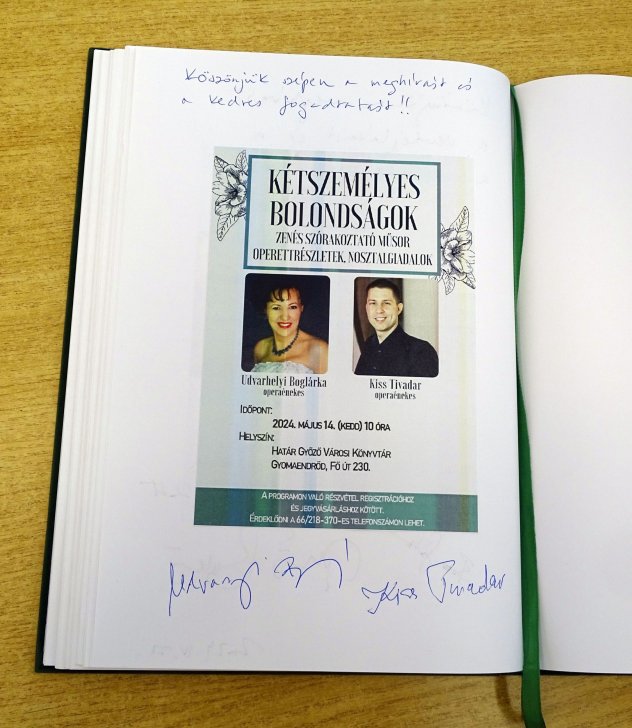 Köszönjük szépen a meghívást és
a kedves fogadtatást!!
KÉTSZEMÉLYES
BOLONDSÁGOK
ZENÉS SZÓRAKOZTATÓ MŰSOR
OPERETTRÉSZLETEK, NOSZTALGIADALOK
Udvarhelyi Boglárka
operaénekes
Kiss Tivadar
operaénekes
IDŐPONT:
2024. MÁJUS 14. (KEDD) 10 ÓRA
HELYSZÍN:
HATÁR GYŐZŐ VÁROSI KÖNYVTÁR
GYOMAENDRŐD, FŐ ÚT 230.
A PROGRAMON VALÓ RÉSZVÉTEL REGISZTRÁCIÓHOZ
ÉS JEGYVÁSÁRLÁSHOZ KÖTÖTT.
ÉRDEKLŐDNI A 66/218-370-ES TELEFONSZÁMON LEHET.
Kiss Tivadar